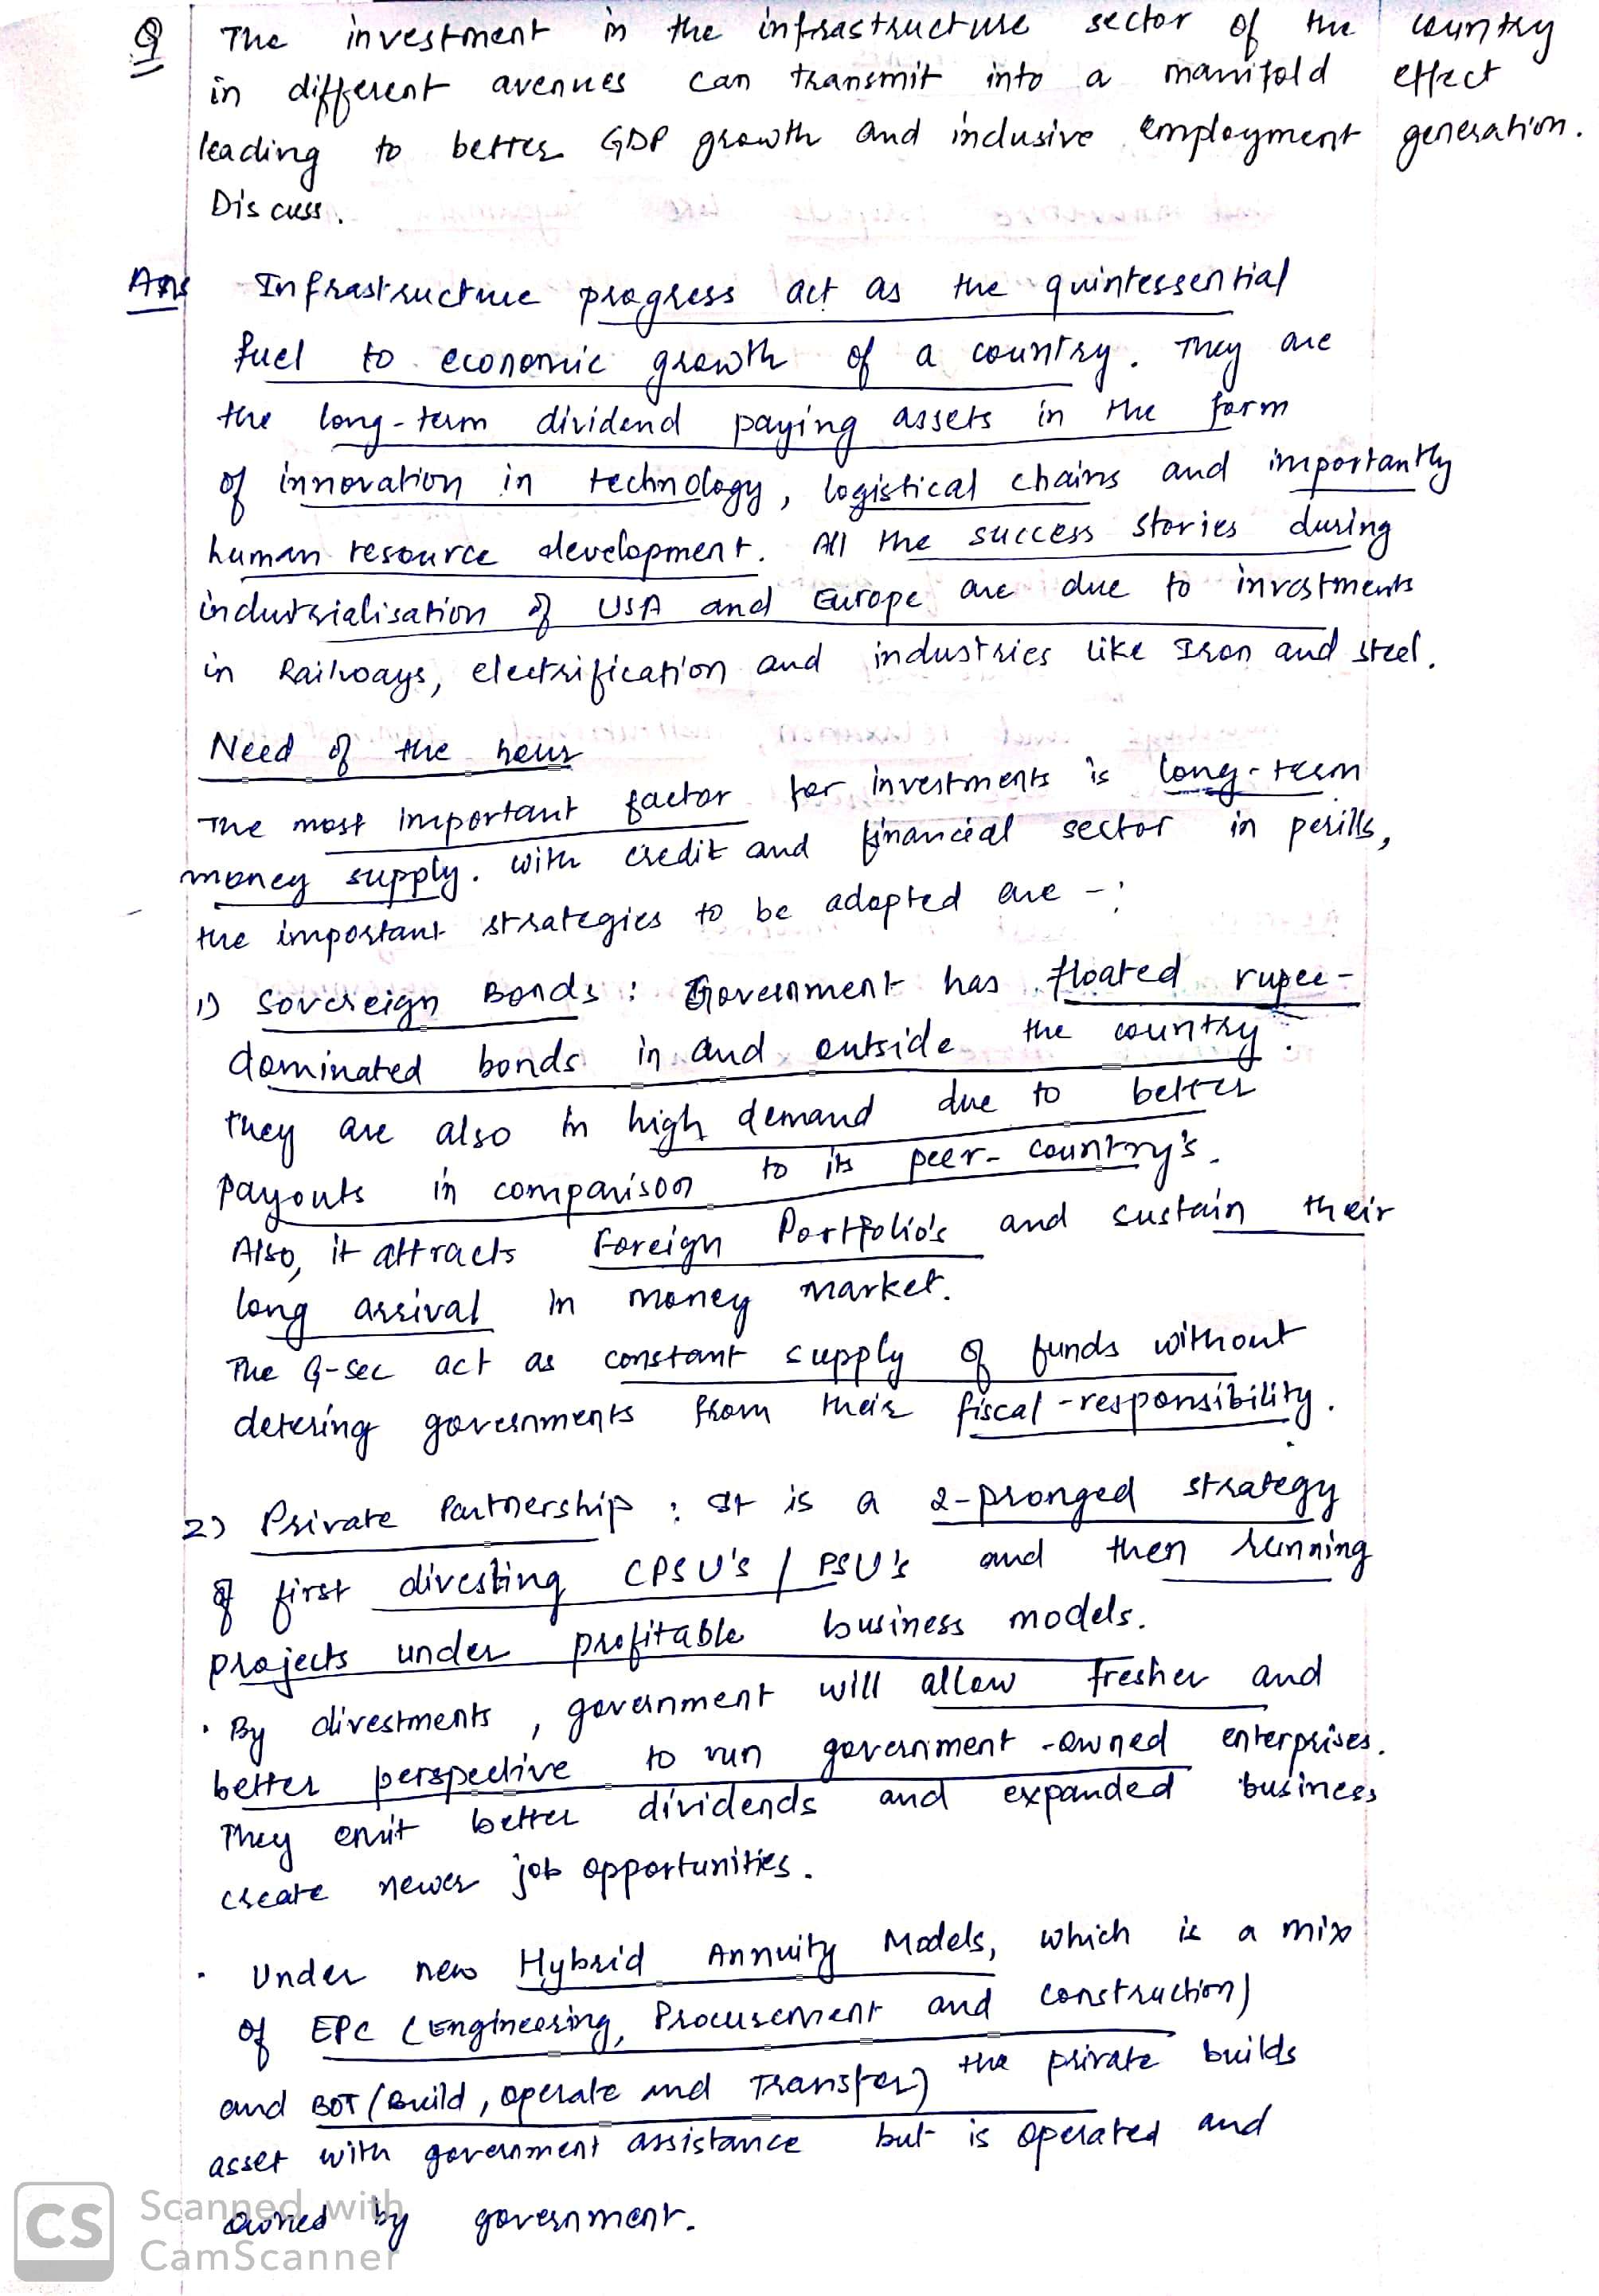 Q The investment in the infrastructure sector of the country
in different avenues can transmit into a manifold effect
leading to better GDP growth and inclusive employment generation.
Discuss.
Ans Infrastructure progress act as the quintessential
fuel to economic growth of a country. They are
the long-term dividend paying assets in the form
of innovation in technology, logistical chains and importantly
human resource development. All the success stories during
industrialisation of USA and Europe are due to investments
in Railways, electrification and industries like Iron and steel.
Need of the hour
The most important factor for investments is long-term
money supply. With credit and financial sector in perills,
the important strategies to be adopted are -:
1) Sovereign Bonds : Government has floated rupee-
dominated bonds in and outside the country.
they are also in high demand due to better
payouts in comparison to its peer-country's.
Also, it attracts Foreign Portfolio's and sustain their
long arrival in money market.
The G-sec act as constant supply of funds without
detering governments from their fiscal-responsibility.
2) Private Partnership : It is a 2-pronged strategy
of first divesting CPSU's / PSU's and then running
projects under profitable business models.
• By divestments, government will allow fresher and
better perspective to run government-owned enterprises.
They emit better dividends and expanded business
create newer job opportunities.
• Under new Hybrid Annuity Models, which is a mix
of EPC (Engineering, Procurement and construction)
and BOT (Build, operate and Transfer) the private builds
asset with government assistance but is operated and
owned by government.
CS Scanned with
CamScanner